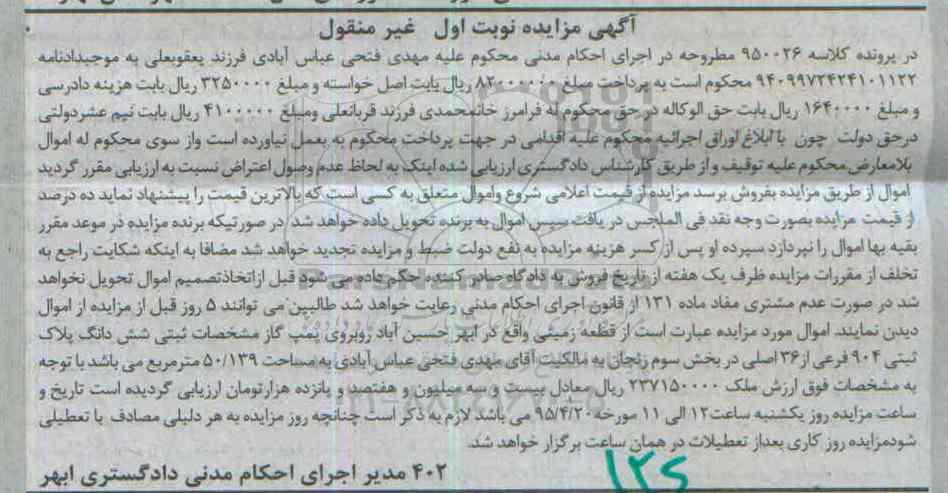 آگهی مزایده نوبت اول غیر منقول
در پرونده کلاسه ۹۵۰۰۲۶ مطروحه در اجرای احکام مدنی محکوم علیه مهدی فتحی عباس آبادی فرزند یعقوبعلی به موجبدادنامه
۹۴۰۹۹۷۲۴۲۴۱۰۱۱۲۲ محکوم است به پرداخت مبلغ ۸۲۰۰۰۰۰۰ ریال بابت اصل خواسته و مبلغ ۳۲۵۰۰۰۰ ریال بابت هزینه دادرسی
و مبلغ ۱۶۴۰۰۰۰ ریال بابت حق الوکاله در حق محکوم له فرامرز خانمحمدی فرزند قربانعلی ومبلغ ۴۱۰۰۰۰۰ ریال بابت نیم عشردولتی
درحق دولت چون با ابلاغ اوراق اجرائیه محکوم علیه اقدامی در جهت پرداخت محکوم به بعمل نیاورده است واز سوی محکوم له اموال
بلامعارض محکوم علیه توقیف و از طریق کارشناس دادگستری ارزیابی شده اینک به لحاظ عدم وصول اعتراض نسبت به ارزیابی مقرر گردید
اموال از طریق مزایده بفروش برسد مزایده از قیمت اعلامی شروع واموال متعلق به کسی است که بالاترین قیمت را پیشنهاد نماید ده درصد
از قیمت مزایده بصورت وجه نقد فی المجلس در یافت سپس اموال به برنده تحویل داده خواهد شد در صورتیکه برنده مزایده در موعد مقرر
بقیه بها اموال را نپردازد سپرده او پس از کسر هزینه مزایده به نفع دولت ضبط و مزایده تجدید خواهد شد مضافا به اینکه شکایت راجع به
تخلف از مقررات مزایده ظرف یک هفته از تاریخ فروش به دادگاه صادر کننده حکم داده می شود قبل ازاتخاذتصمیم اموال تحویل نخواهد
شد در صورت عدم مشتری مفاد ماده ۱۳۱ از قانون اجرای احکام مدنی رعایت خواهد شد طالبین می توانند ۵ روز قبل از مزایده از اموال
دیدن نمایند. اموال مورد مزایده عبارت است از قطعه زمینی واقع در ابهر حسین آباد روبروی پمپ گاز مشخصات ثبتی شش دانگ پلاک
ثبتی ۹۰۴ فرعی از۳۶ اصلی در بخش سوم زنجان به مالکیت آقای مهدی فتحی عباس آبادی به مساحت ۵۰/۱۳۹ مترمربع می باشد با توجه
به مشخصات فوق ارزش ملک ۲۳۷۱۵۰۰۰۰ ریال معادل بیست و سه میلیون و هفتصد و پانزده هزارتومان ارزیابی گردیده است تاریخ و
ساعت مزایده روز یکشنبه ساعت۱۲ الی ۱۱ مورخه ۹۵/۴/۲۰ می باشد لازم به ذکر است چنانچه روز مزایده به هر دلیلی مصادف با تعطیلی
شودمزایده روز کاری بعداز تعطیلات در همان ساعت برگزار خواهد شد.
۴۰۲ مدیر اجرای احکام مدنی دادگستری ابهر
ParsNamadData